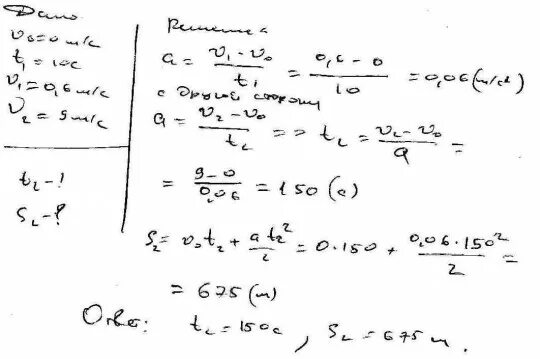 Дано
v₀=0 м/с
t₁=10с
v₁=0,6 м/с
v₂=9 м/с
t₂-?
S₂-?
Решение
a = (v₁-v₀)/t₁ = (0,6-0)/10 = 0,06 (м/с²)
с другой стороны
a = (v₂-v₀)/t₂ => t₂ = (v₂-v₀)/a =
= (9-0)/0,06 = 150 (с)
S₂ = v₀t₂ + at₂²/2 = 0·150 + 0,06·150²/2 =
= 675 (м)
Ответ: t₂=150с, S₂=675м.